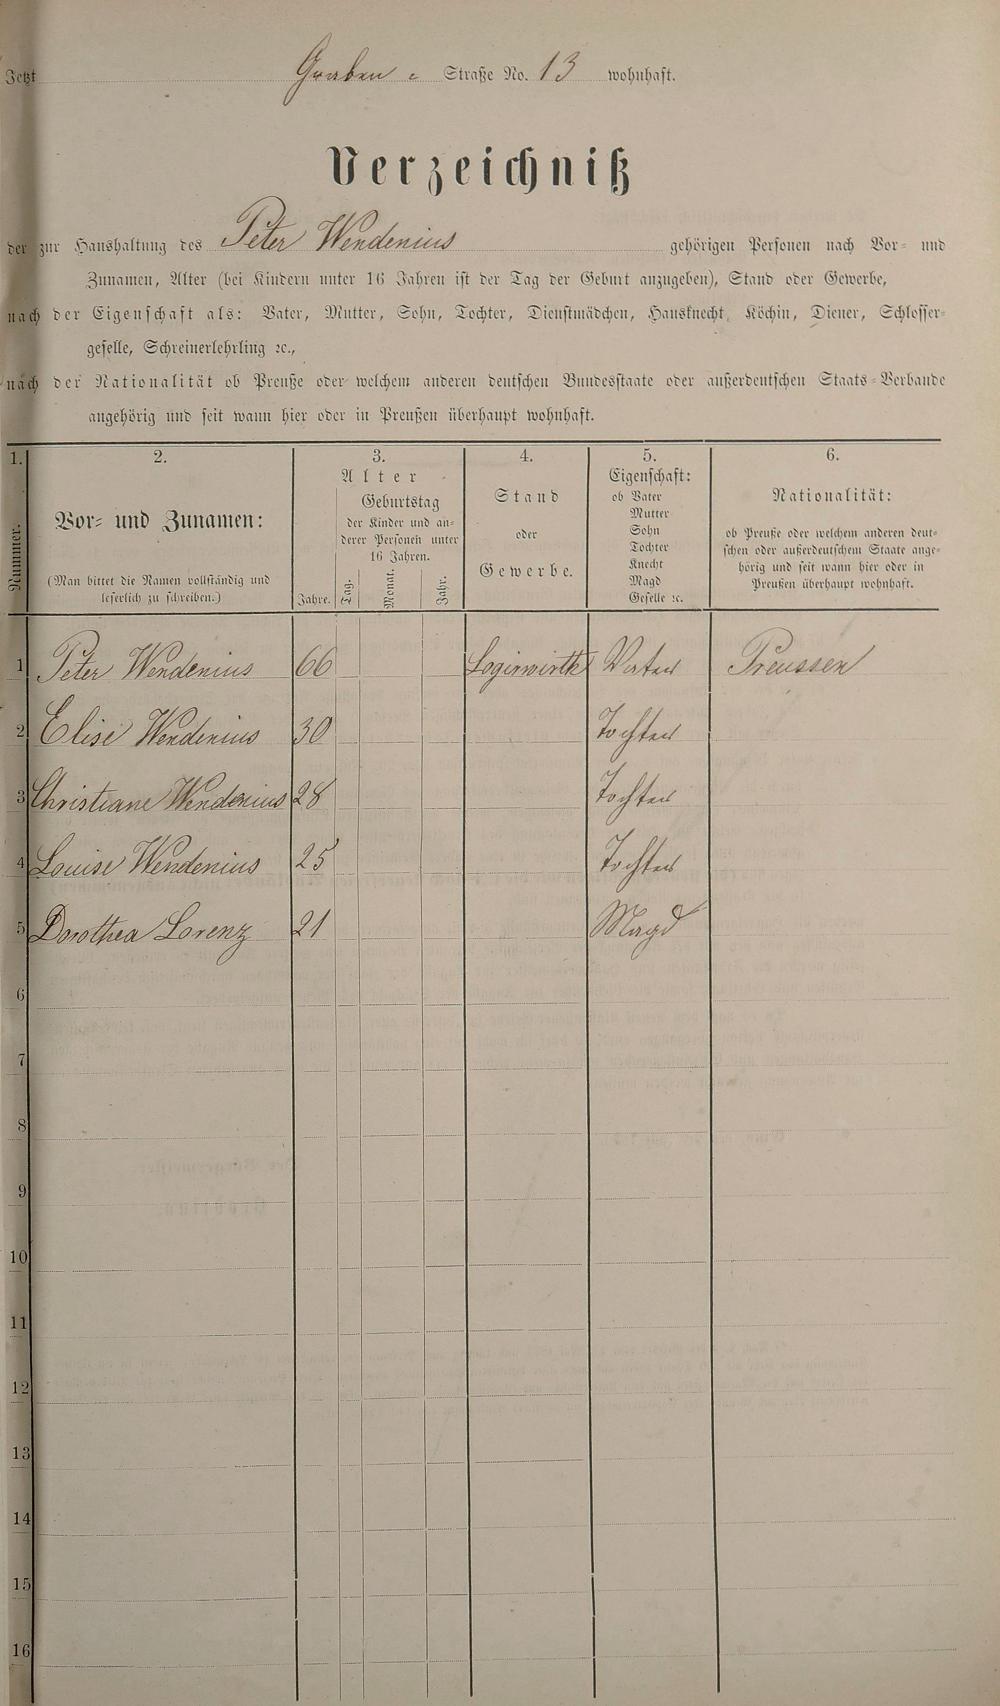 Jetzt Graben - Straße No. 13 wohnhaft.
Verzeichniß
der zur Haushaltung des Peter Wendenius gehörigen Personen nach Vor- und
Zunamen, Alter (bei Kindern unter 16 Jahren ist der Tag der Geburt anzugeben), Stand oder Gewerbe,
nach der Eigenschaft als: Vater, Mutter, Sohn, Tochter, Dienstmädchen, Hausknecht, Köchin, Diener, Schlosser-
geselle, Schreinerlehrling ꝛc.,
nach der Nationalität ob Preuße oder welchem anderen deutschen Bundesstaate oder außerdeutschen Staats-Verbande
angehörig und seit wann hier oder in Preußen überhaupt wohnhaft.
1. 2. 3. 4. 5. 6.
Nummer.
Vor- und Zunamen:
(Man bittet die Namen vollständig und
leserlich zu schreiben.)
Alter
Jahre.
Geburtstag
der Kinder und an-
derer Personen unter
16 Jahren.
Tag. Monat. Jahr.
Stand
oder
Gewerbe.
Eigenschaft:
ob Vater
Mutter
Sohn
Tochter
Knecht
Magd
Geselle ꝛc.
Nationalität:
ob Preuße oder welchem anderen deut-
schen oder außerdeutschem Staate ange-
hörig und seit wann hier oder in
Preußen überhaupt wohnhaft.
1 Peter Wendenius 66 Logirwirth Vater Preussen
2 Elise Wendenius 30 Tochter
3 Christiane Wendenius 28 Tochter
4 Louise Wendenius 25 Tochter
5 Dorothea Lorenz 21 Magd
6
7
8
9
10
11
12
13
14
15
16